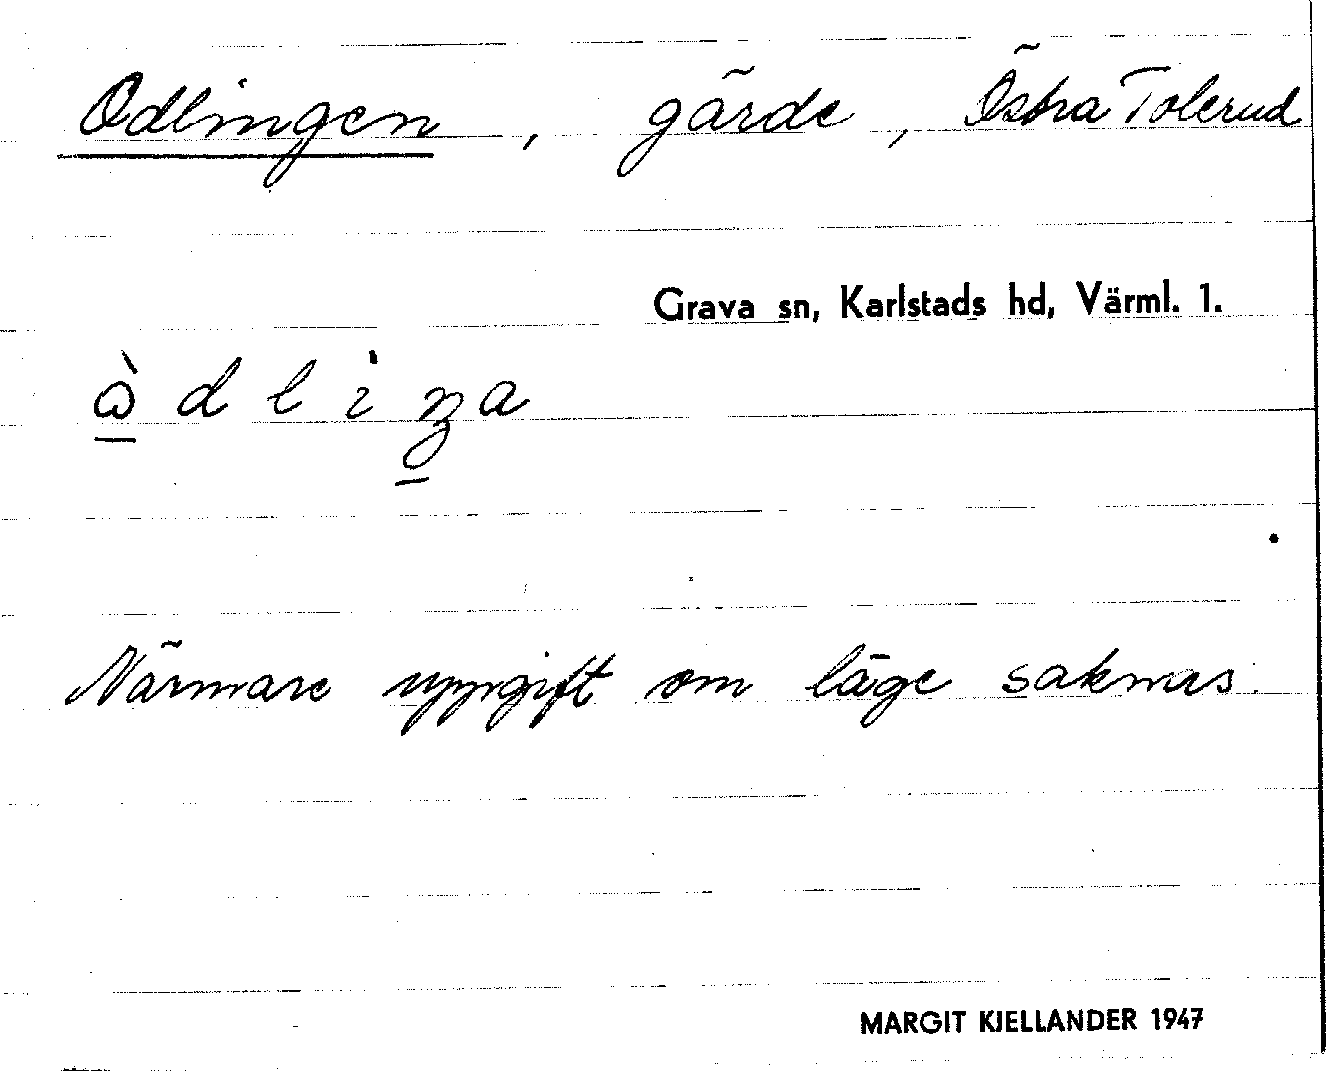 Odlingen, gärde, Östra Tolerud
Grava sn, Karlstads hd, Värml. 1.
ὼdlìŋa
Närmare uppgift om läge saknas.
MARGIT KJELLANDER 1947